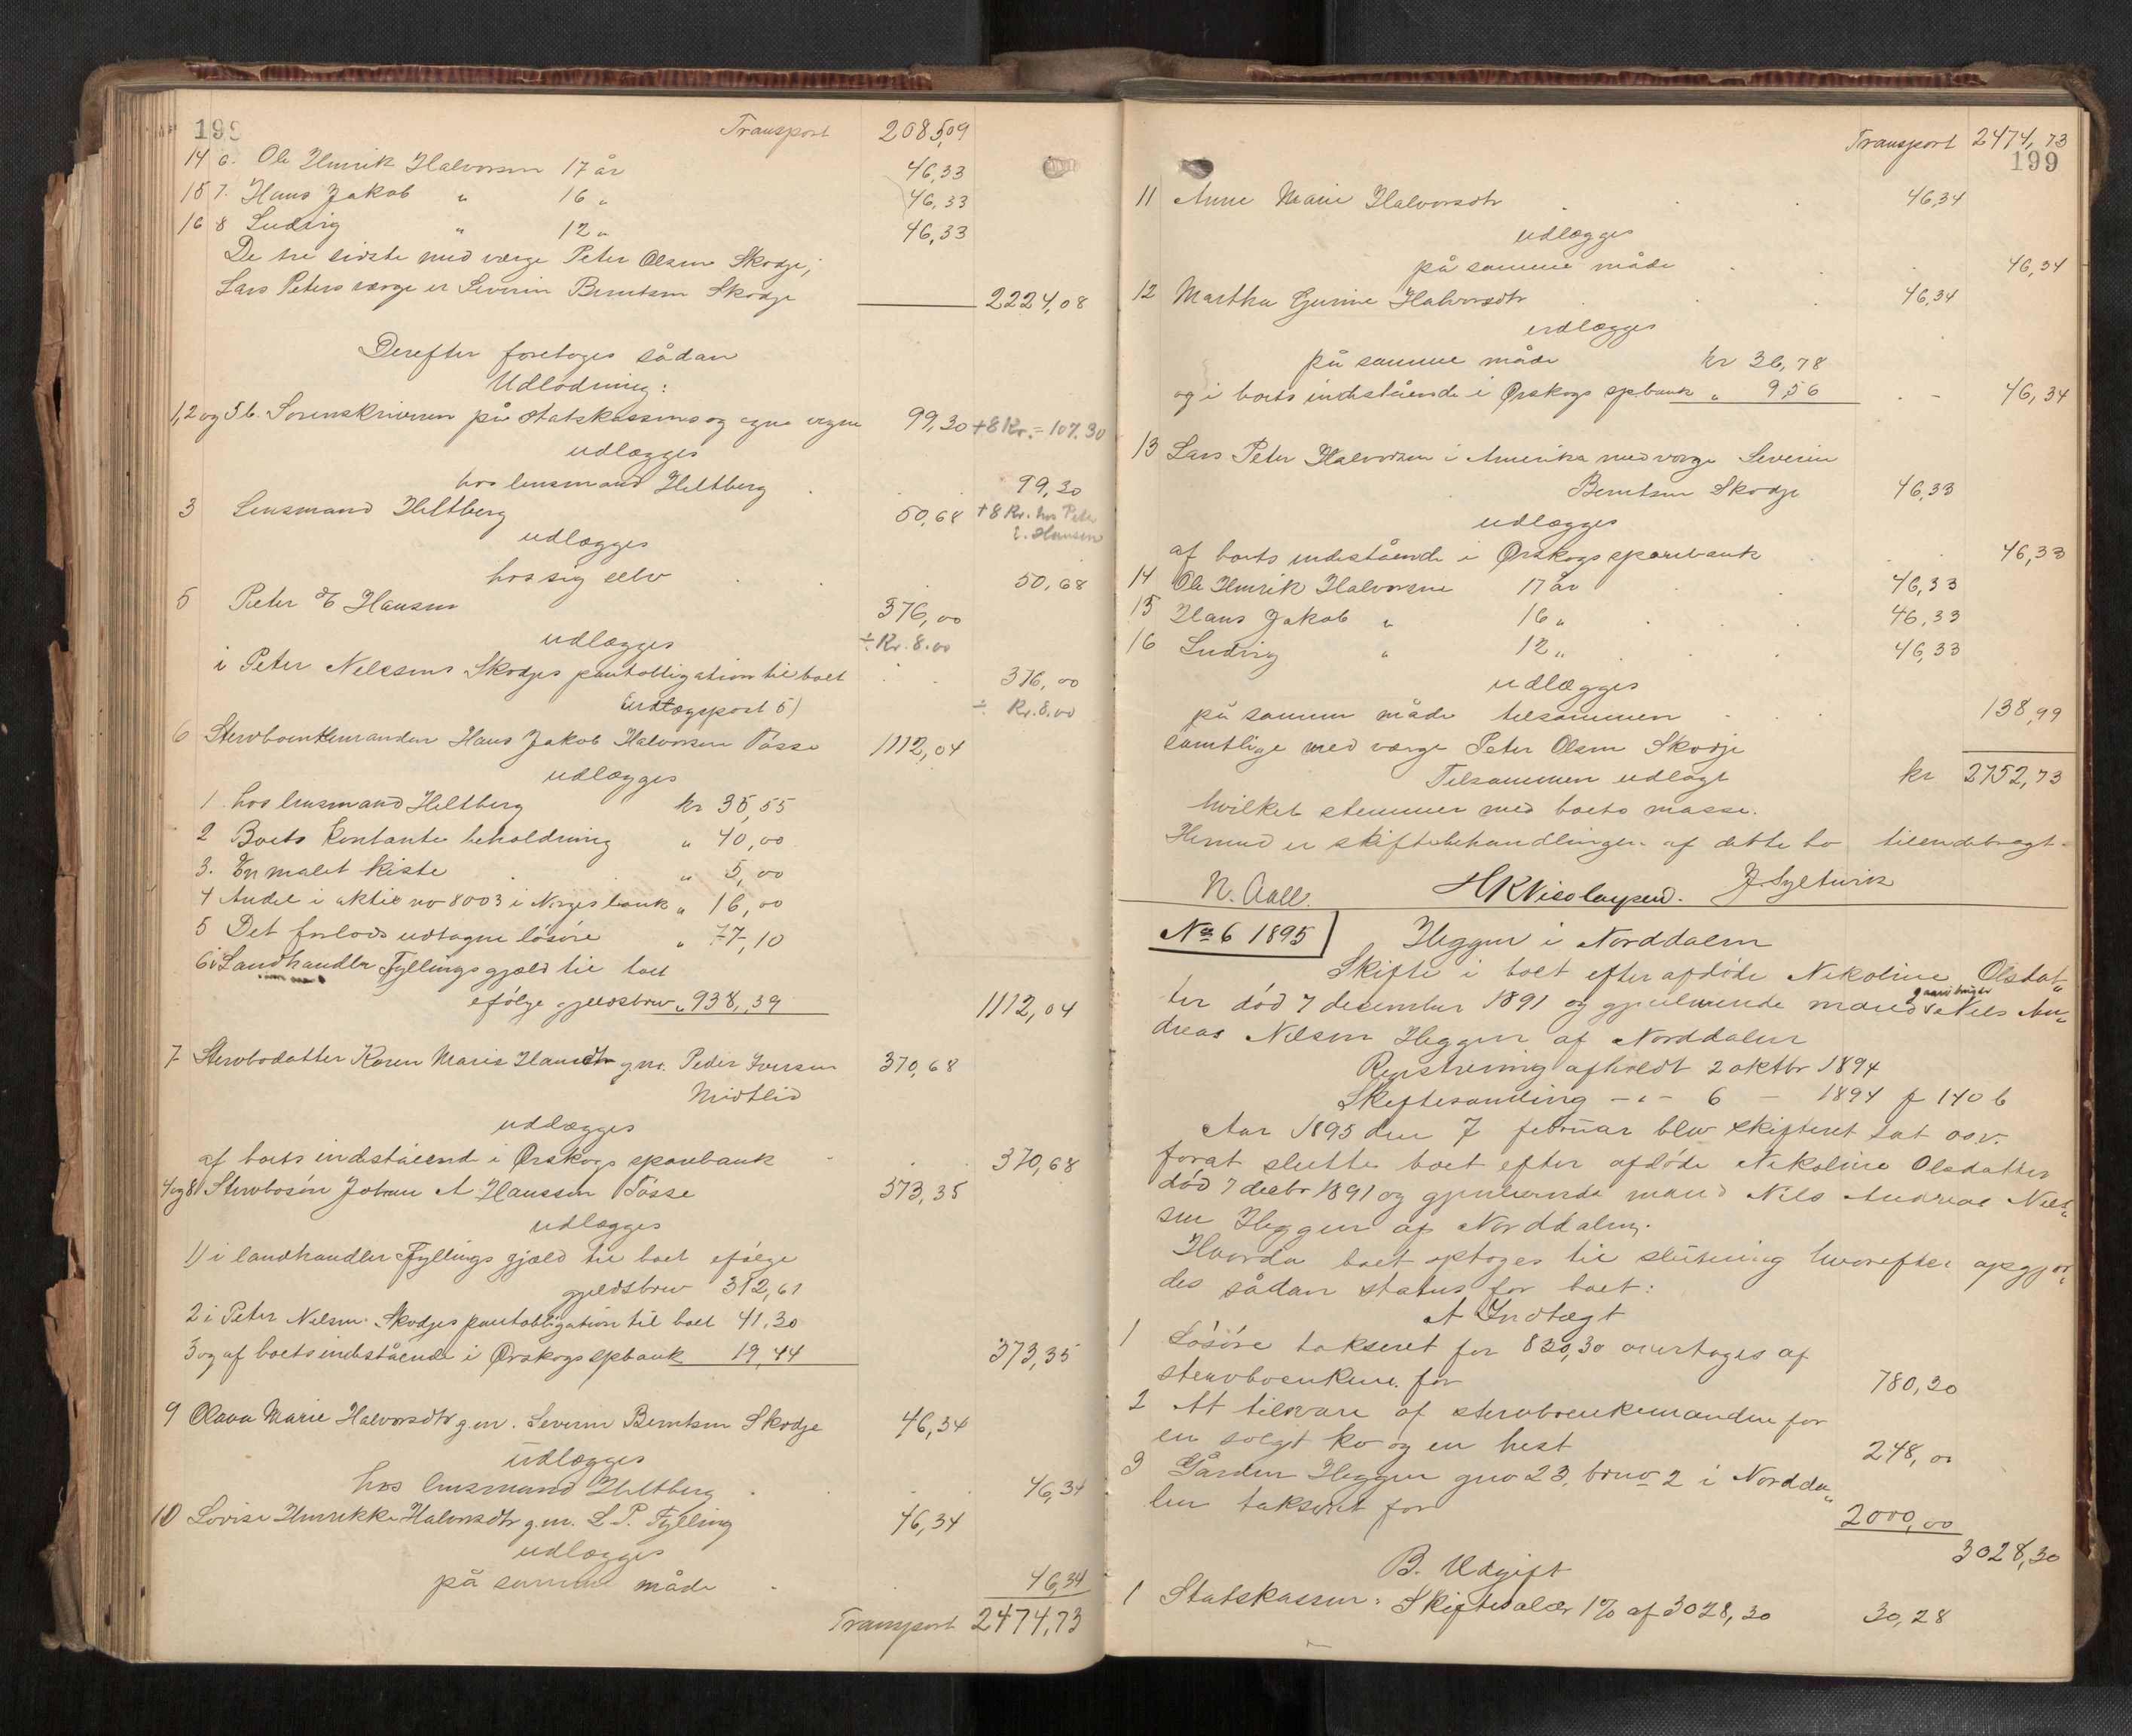 199
Transport 2085,09
14 6. Ole Henrik Halvorsen 17 år 46,33
15 7. Hans Jakob " 16 " 46,33
16 8 Ludvig " 12 " 46,33
De tre sidste med værge Peter Olsen Skodje;
Lars Peters værge er Severin Berntsen Skodje 2224,08
Derefter foretoges sådan
Udlodning:
1, 2 og 5 b. Sorenskriveren på statskassens og egne vegne 99,30 + 8 Kr. = 107.30
udlægges
hos lensmand Heltberg 99,30
3 Lensmand Heltberg 50,68 + 8 Kr. hos Peter
E. Hansen
udlægges
hos sig selv 50,68
5 Peter E Hansen 376,00
udlægges ÷ Kr. 8.00
i Peter Nelsens Skodjes pantobligation til boet 376,00
(Indtægtspost 5) ÷ Kr. 8.00
6 Stervboenkemanden Hans Jakob Halvorsen Fosse 1112,04
udlægges
1 hos lensmand Heltberg kr 35,55
2 Boets kontante beholdning " 40,00
3. En malet kiste " 5,00
4 Andel i aktie no 8003 i Norges bank " 16,00
5 Det forlods udtagne løsøre " 77,10
6 i Landhandler Fyllings gjæld til boet
efølge gjeldsbrev " 938,39 1112,04
7 Stervbodatter Karen Marie Hansdtr g.m. Peder Iversen 370,68
Midtlid
udlægges
af boets indestående i Ørskogs sparebank 370,68
4 og 8 Stervbosøn Johan A Hanssen Fosse 373,35
udlægges
1) i landhandler Fyllings gjæld til boet efølge
gjeldsbrev 312,61
2 i Peter Nelsens Skodjes pantobligation til boet 41,30
3 og af boets indestående i Ørskogs spbank 19,44 373,35
9 Olava Marie Halvorsdtr g.m. Severin Berntsen Skodje 46,34
udlægges
hos lensmand Heltberg 46,34
10 Lovise Henrikke Halvorsdtr g.m. L. P. Fylling 46,34
udlægges
på samme måde 46,34
Transport 2474,73
Transport 2474,73
199
11 Anne Marie Halvorsdtr 46,34
udlægges
på samme måde 46,34
12 Martha Gurine Halvorsdtr 46,34
udlægges
på samme måde kr 36,78
og i boets indestående i Ørskogs spbank " 9,56 46,34
13 Lars Peter Halvorsen i Amerika med værge Severin
Berntsen Skodje 46,33
udlægges
af boets indestående i Ørskogs sparebank 46,33
14 Ole Henrik Halvorsen 17 år 46,33
15 Hans Jakob " 16 " 46,33
16 Ludvig " 12 " 46,33
udlægges
på samme måde tilsammen 138,99
samtlige med værge Peter Olsen Skodje
Tilsammen udlagt kr 2752,73
hvilket stemmer med boets masse.
Hermed er skiftebehandlingen af dette bo tilendebragt.
N. Aall. HKNicolaysen. J Syltevik
No 6 1895
Heggen i Norddalen
Skifte i boet efter afdøde Nekoline Olsdat„
ter død 7 december 1891 og gjenlevende mand gaardbruger Nils An„
dreas Nilsen Heggen af Norddalen
Registrering afholdt 2 oktbr 1894
Skiftesamling – " – 6 – 1894 p 140 b
Aar 1895 den 7 februar blev skifteret sat osv.
forat slutte boet efter afdøde Nekoline Olsdatter
død 7 decbr 1891 og gjenlevende mand Nils Andreas Niel„
sen Heggen af Norddalen.
Hvorda boet optoges til slutning hvorefter opgjor„
des sådan status for boet:
A Indtægt
1 Løsøre takseret for 830,30 overtages af
stervboenkem. for 780,30
2 At tilsvare af stervboenkemanden for
en solgt ko og en hest 248,00
3 Gården Heggen gno 23, bruno 2 i Nordda„
len takseret for 2000,00
3028,30
B. Udgift
1 Statskassen: Skiftesalær 1% af 3028,30 30,28